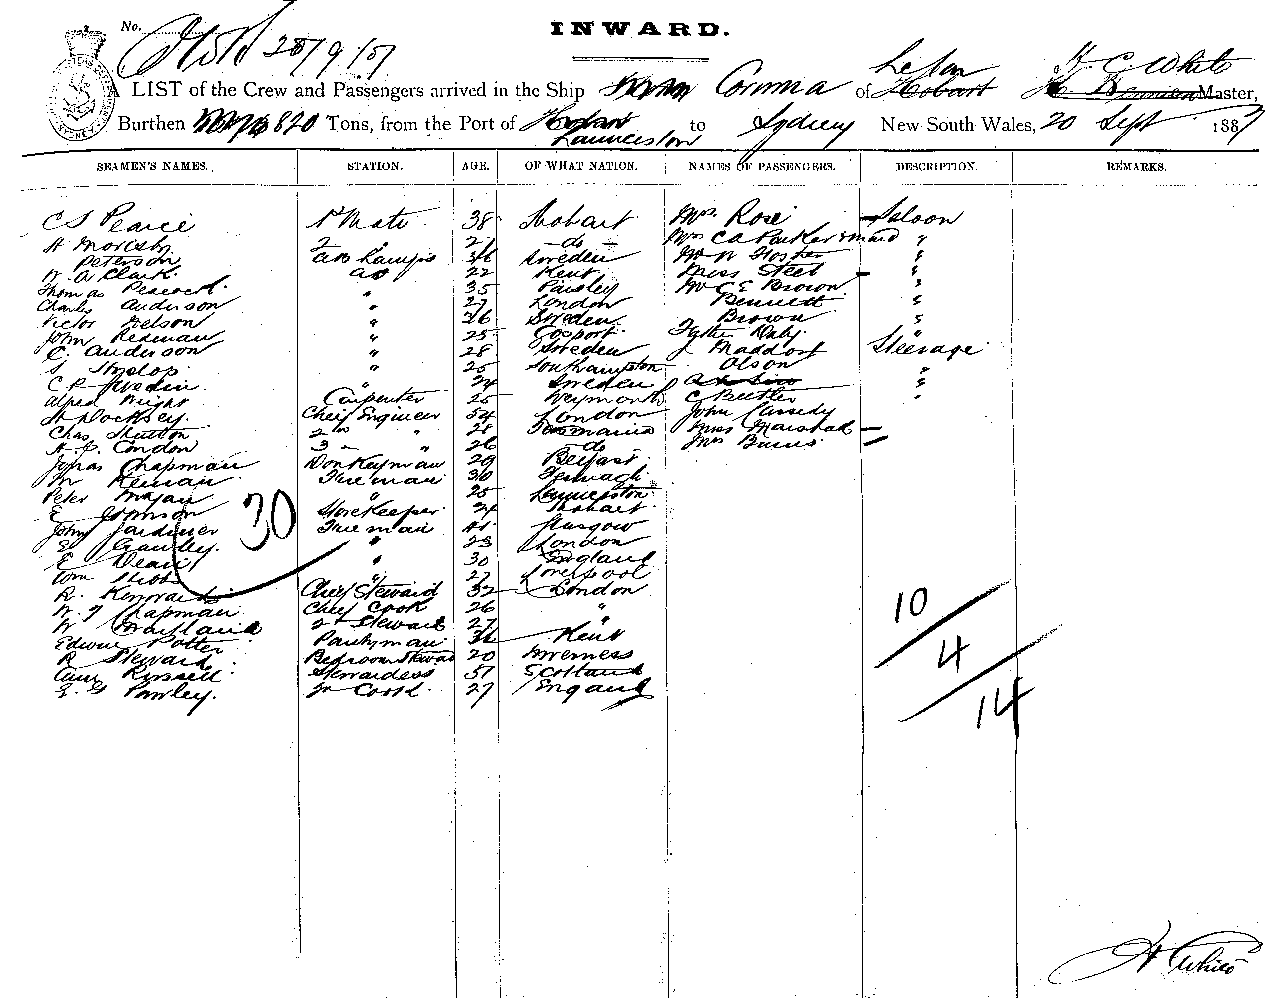 INWARD.
No. 20/9/87
A LIST of the Crew and Passengers arrived in the Ship Corinna of Hobart W C White Master,
Burthen 820 Tons, from the Port of Launceston to Sydney New South Wales, 20 Sept 1887
SEAMEN'S NAMES. STATION. AGE. OF WHAT NATION. NAMES OF PASSENGERS. DESCRIPTION. REMARKS.
C S Pearce 1st Mate 38 Hobart Mrs Rose Saloon
H Morisby 2 " 21 do Mrs C A Parker & maid "
Peterson AB Lamps 36 Sweden Mr W Foster "
W. A Clark AB 22 Kent Miss Steel "
Thomas Peacock " 35 Paisley Mr C E Brown "
Charles Anderson " 27 London Bennett "
Victor Nelson " 26 Sweden Brown "
John Redman " 25 Gosport Father Daly "
C. Anderson " 28 Sweden J Maddox Steerage
S Inslop " 25 Southampton Olson "
C P " 24 Sweden "
Alfred Wright Carpenter 25 Weymouth C Butler "
H Locksey. Chief Engineer 54 London John Cassidy
Chas Hutton 2nd " 28 Tasmania Miss Marshall
H. J. Condon 3 " 26 do Mrs Burns
Jonas Chapman Donkeyman 29 Belfast
Keenan Fireman 30
Peter " 25 Launceston
E Johnson Storekeeper 24 Hobart
John Gardiner Fireman 41 Glasgow
E Gawley. " 23 London
E Dean " 30 England
Wm " 27 Liverpool
30
R. Chief Steward 32 London
W. J Chapman Chief Cook 26 "
W Maitland 2nd Steward 27 "
Edwin Potter Pantryman 36 Kent
R Steward Bedroom Steward 20 Inverness
Russell Stewardess 51 Scotland
E. G Pawley. Cook 27 England
10
4
14
W C White